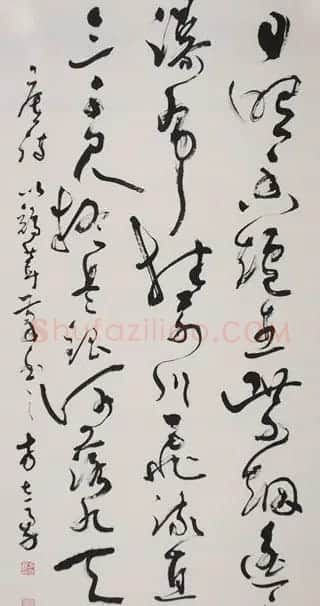 日照香爐生紫烟遥
瀑布挂前川飛流直
三千尺疑是銀河落九天
唐诗
Shufaziliao